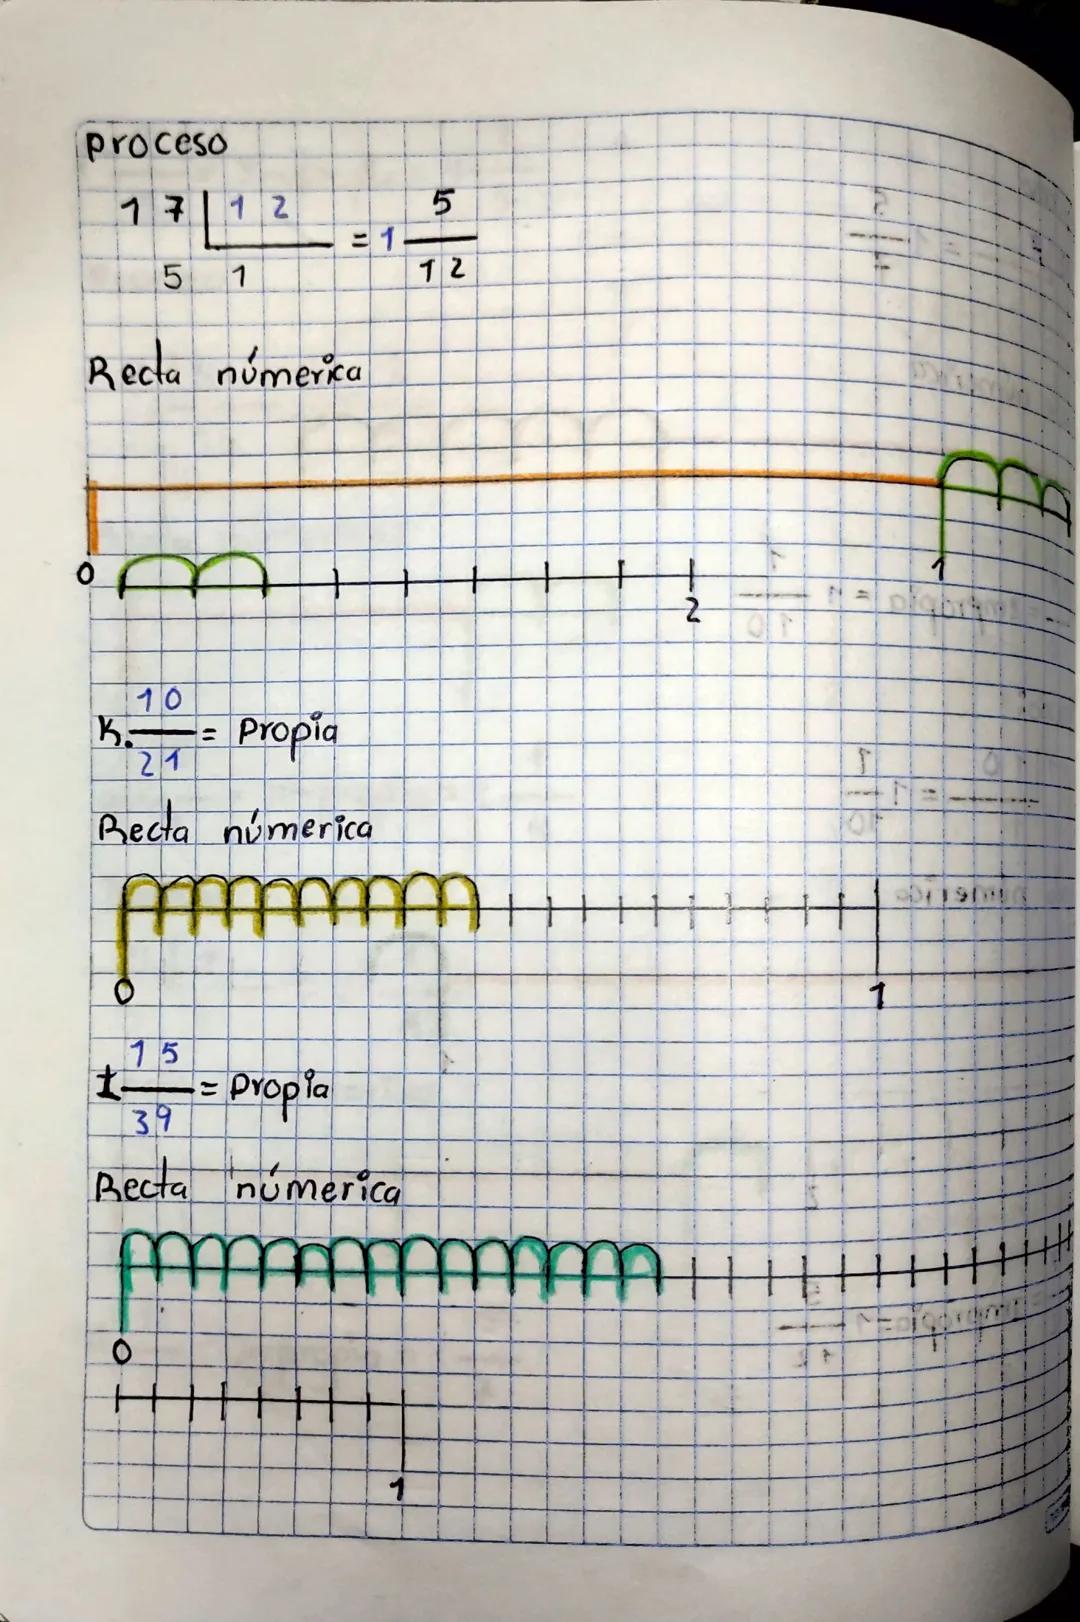 proceso
17 12 = 1 5/12
5 1
Recta númerica
0 1
2
K. 10/21 = Propia
Recta númerica
0 1
I 15/39 = Propia
Recta númerica
0
1